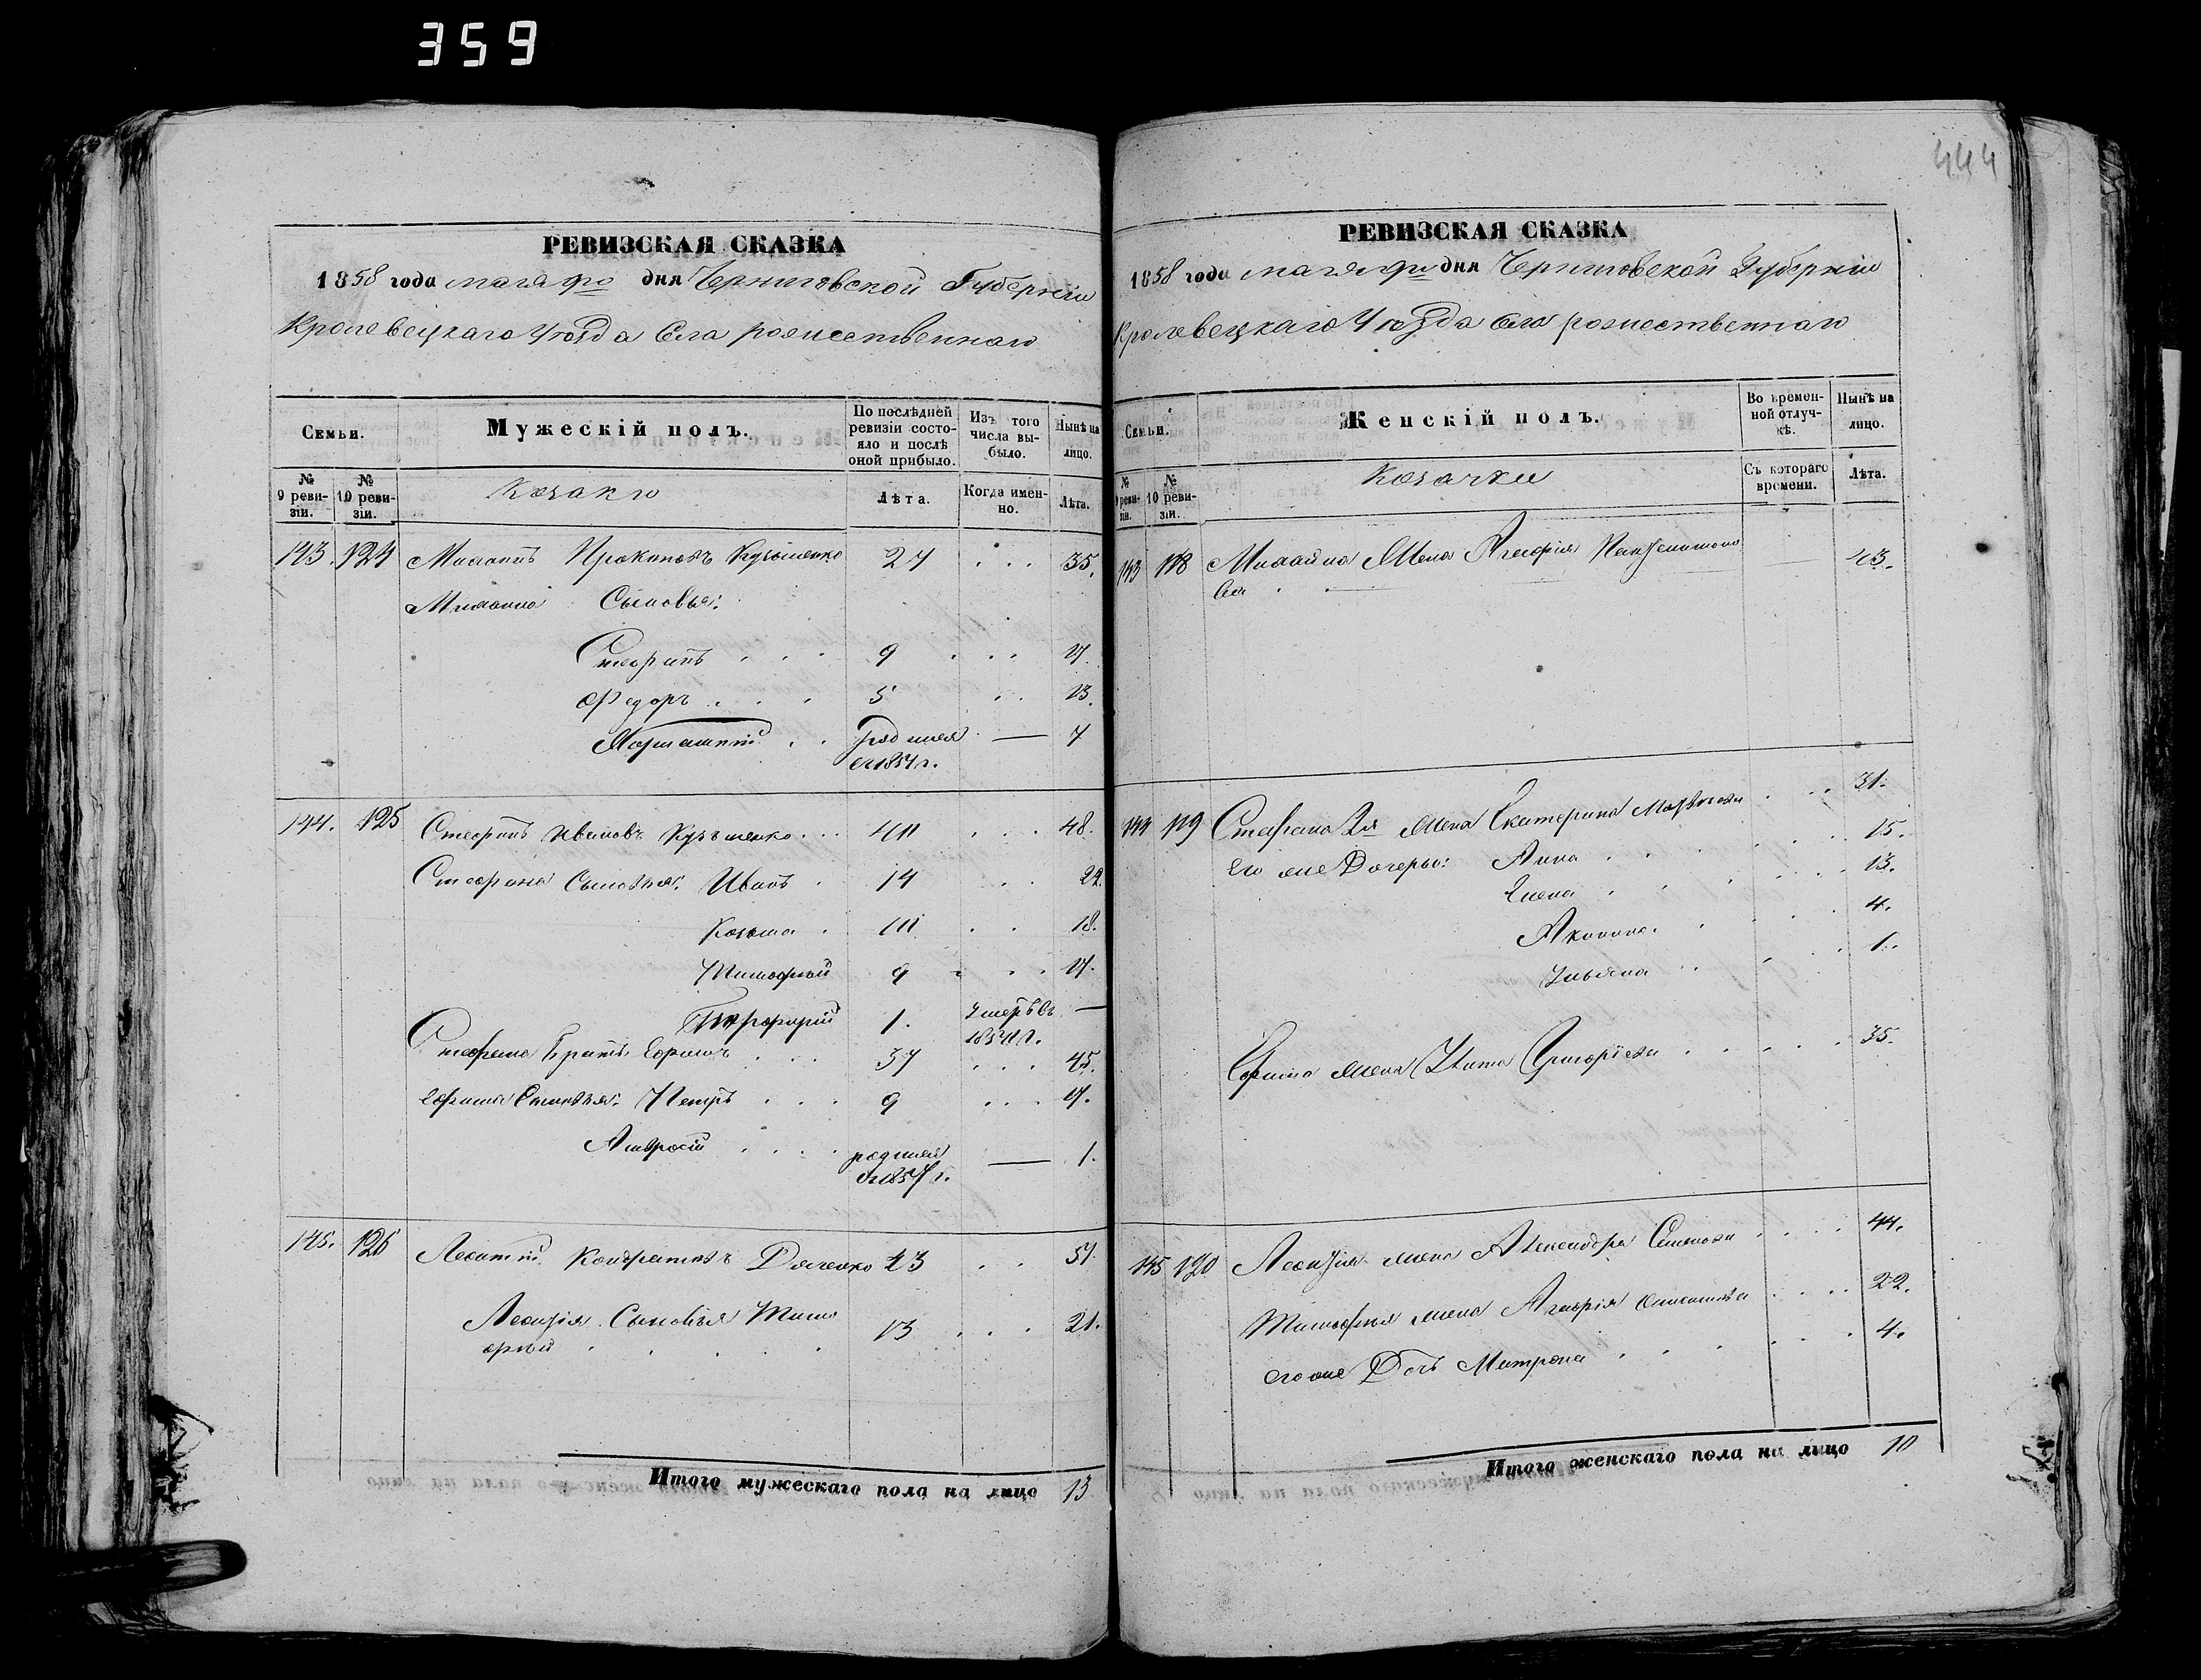 359
444
РЕВИЗСКАЯ СКАЗКА
1858 года мая дня Черниговской Губерніи
Кролевецкаго Уѣзда Села рожественнаго
Семьи.
Мужескій полъ.
По послѣдней ревизіи состояло и послѣ оной прибыло.
Изъ того числа выбыло.
Нынѣ на лицо.
№ 9 ревизіи.
№ 10 ревизіи.
Козаки
Лѣта.
Когда именно.
Лѣта.
143. 124 Прокиповъ Кузьменко 27 35.
Сыновья:
Стефанъ 9 17.
Федоръ 5 13.
родился 7
144. 125 Стефанъ Ивановъ Кузьменко 40 48.
Стефана Сыновья: Иванъ 14 22.
Козьма 10 18.
Тимофей 9 17.
Порфирій 1. Умеръ въ —
Стефана Братъ Ефимъ 37 45.
Ефима Сыновья: Петръ 9 17.
Амвросій родился — 1.
въ 1857 г.
145. 126 Леонтій Кондратовъ Дяченко 43 51.
Леонтія Сыновья Тимо
фей 13 21.
Итого мужескаго пола на лицо 13.
РЕВИЗСКАЯ СКАЗКА
1858 года мая дня Черниговской Губерніи
Кролевецкаго Уѣзда Села рожественнаго
Семьи.
Женскій полъ.
Во временной отлучкѣ.
Нынѣ на лицо.
№ 9 ревизіи.
№ 10 ревизіи.
Козачки
Съ котораго времени.
Лѣта.
143 118 Жена Агафія Пантелимоно
ва 43.
144 119 Стефана 2я Жена Екатерина 31.
Его же Дочери: Анна 15.
Елена 13.
Акилина 4.
Ульяна 1.
Ефима Жена Григорьева 35.
145 120 Леонтія жена Александра Семенова 44.
Тимофея жена 22.
его же Дочь Матрона 4.
Итого женскаго пола на лицо 10